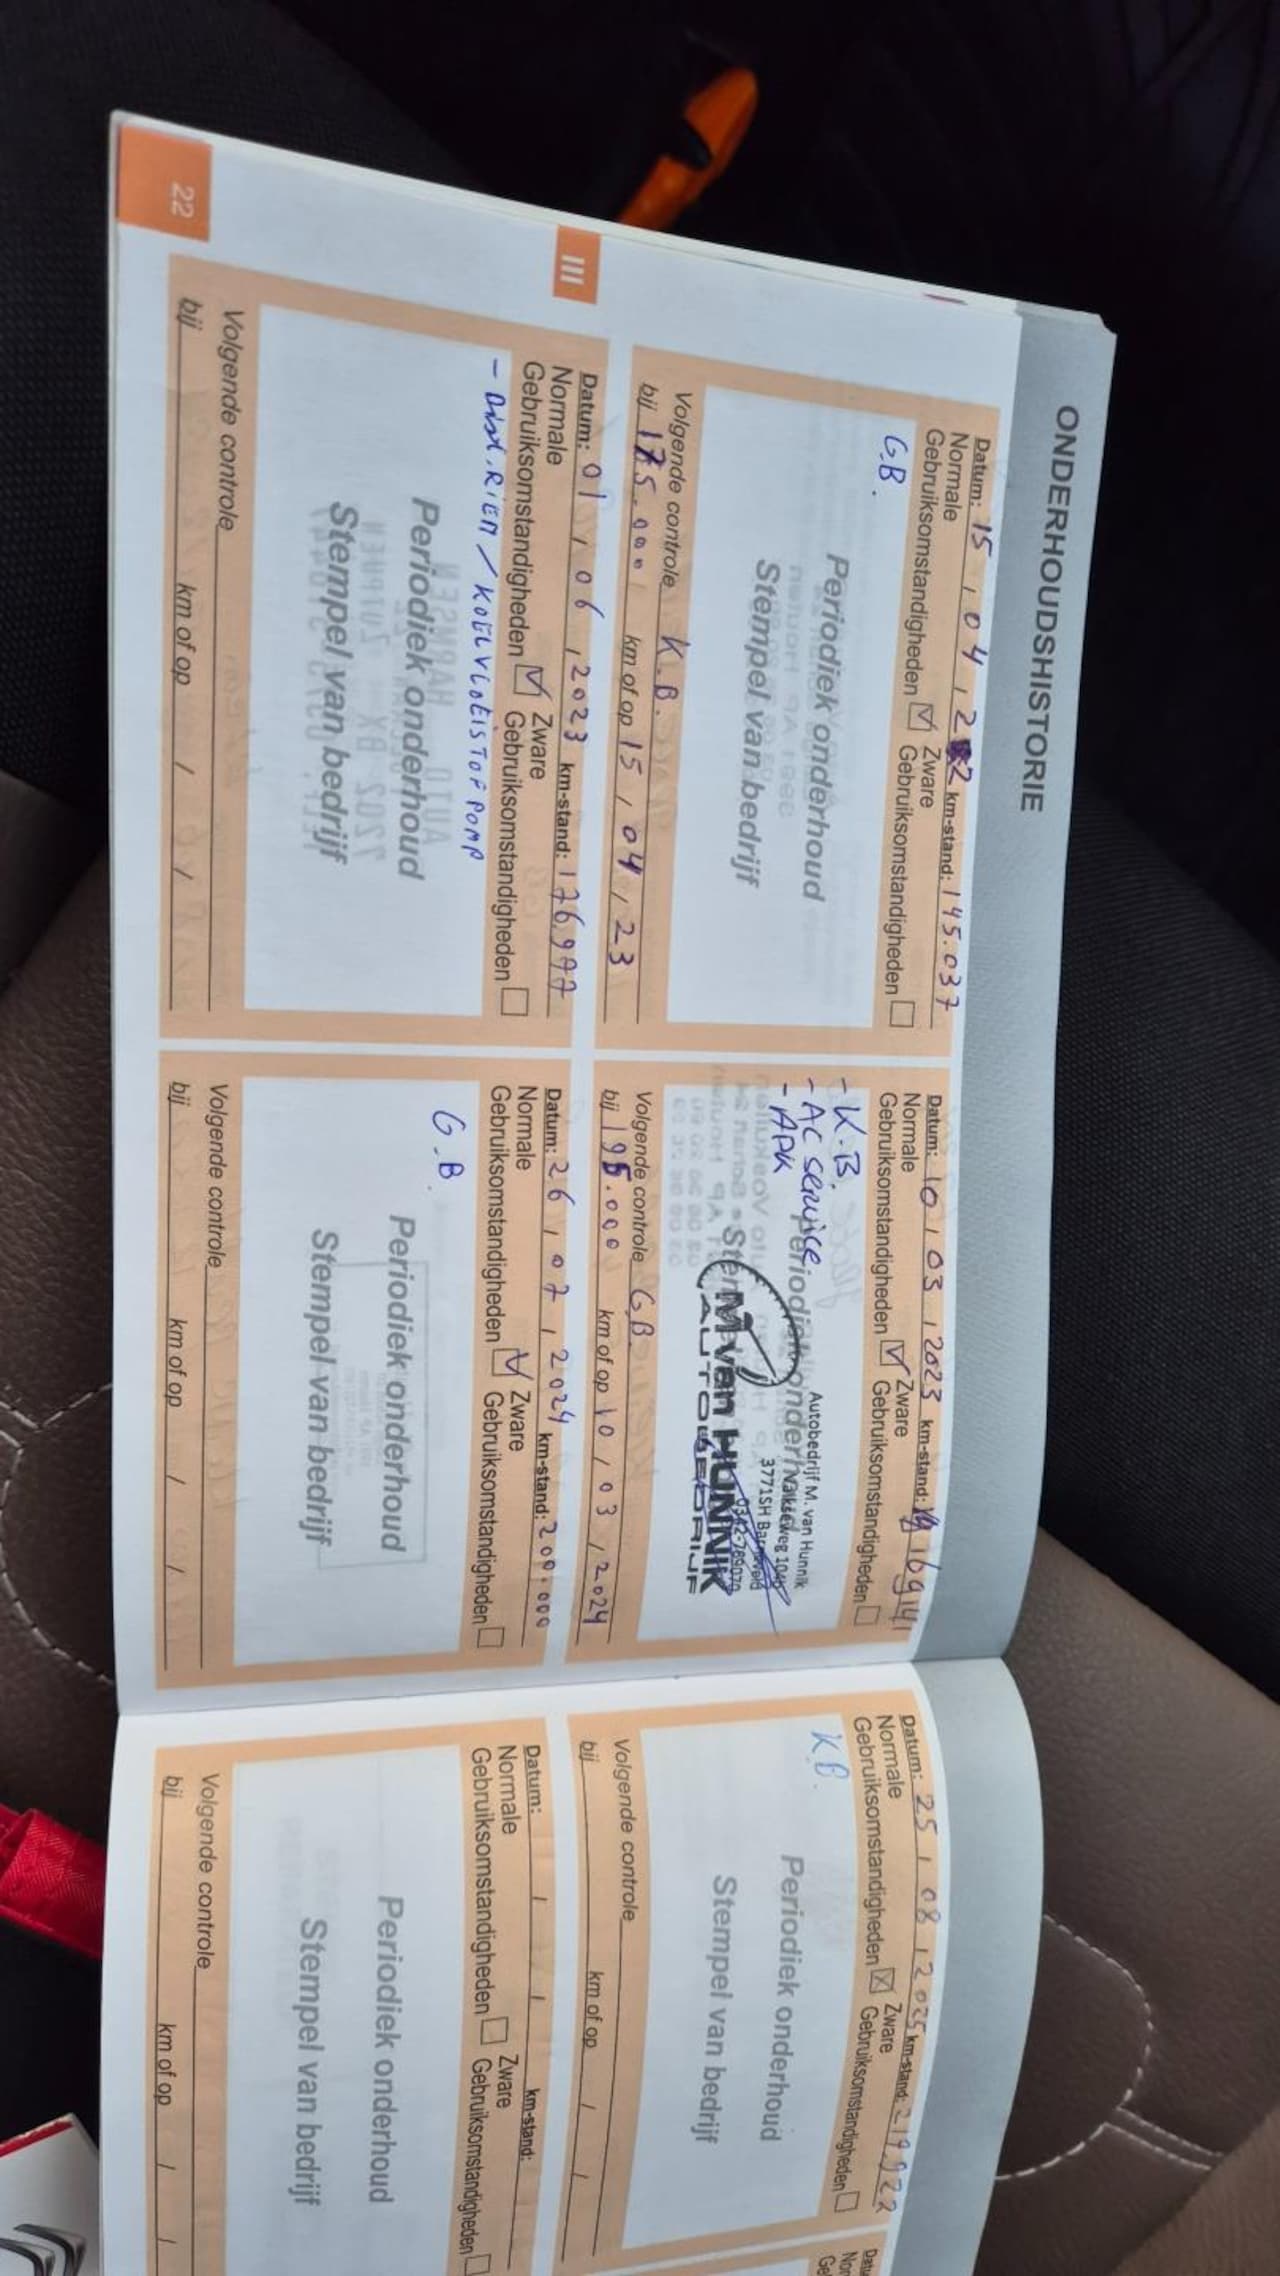 ONDERHOUDSHISTORIE
Datum: 15 / 04 / 22 km-stand: 145.037
Normale Gebruiksomstandigheden ☑ Zware Gebruiksomstandigheden ☐
G.B.
Periodiek onderhoud
Stempel van bedrijf
Volgende controle K.B.
bij 175.000 km of op 15 / 04 / 23
Datum: 10 / 03 / 2023 km-stand:
Normale Gebruiksomstandigheden ☑ Zware Gebruiksomstandigheden ☐
- K.B.
- AC service
- APK
Periodiek onderhoud
Autobedrijf M. van Hunnik
3771SH Barneveld
0342-769070
M van HUNNIK
AUTOBEDRIJF
Volgende controle G.B.
bij 195.000 km of op 10 / 03 / 2024
III
Datum: 01 / 06 / 2023 km-stand: 176.977
Normale Gebruiksomstandigheden ☑ Zware Gebruiksomstandigheden ☐
- Dist.RiEM / KOELVLOEISTOF POMP
Periodiek onderhoud
Stempel van bedrijf
Volgende controle
bij km of op / /
Datum: 26 / 07 / 2024 km-stand: 200.000
Normale Gebruiksomstandigheden ☑ Zware Gebruiksomstandigheden ☐
G.B.
Periodiek onderhoud
Stempel van bedrijf
Volgende controle
bij km of op / /
22
Datum: 25 / 08 / 2025 km-stand: 219922
Normale Gebruiksomstandigheden ☒ Zware Gebruiksomstandigheden ☐
K.B.
Periodiek onderhoud
Stempel van bedrijf
Volgende controle
bij km of op / /
Datum: / / km-stand:
Normale Gebruiksomstandigheden ☐ Zware Gebruiksomstandigheden ☐
Periodiek onderhoud
Stempel van bedrijf
Volgende controle
bij km of op / /